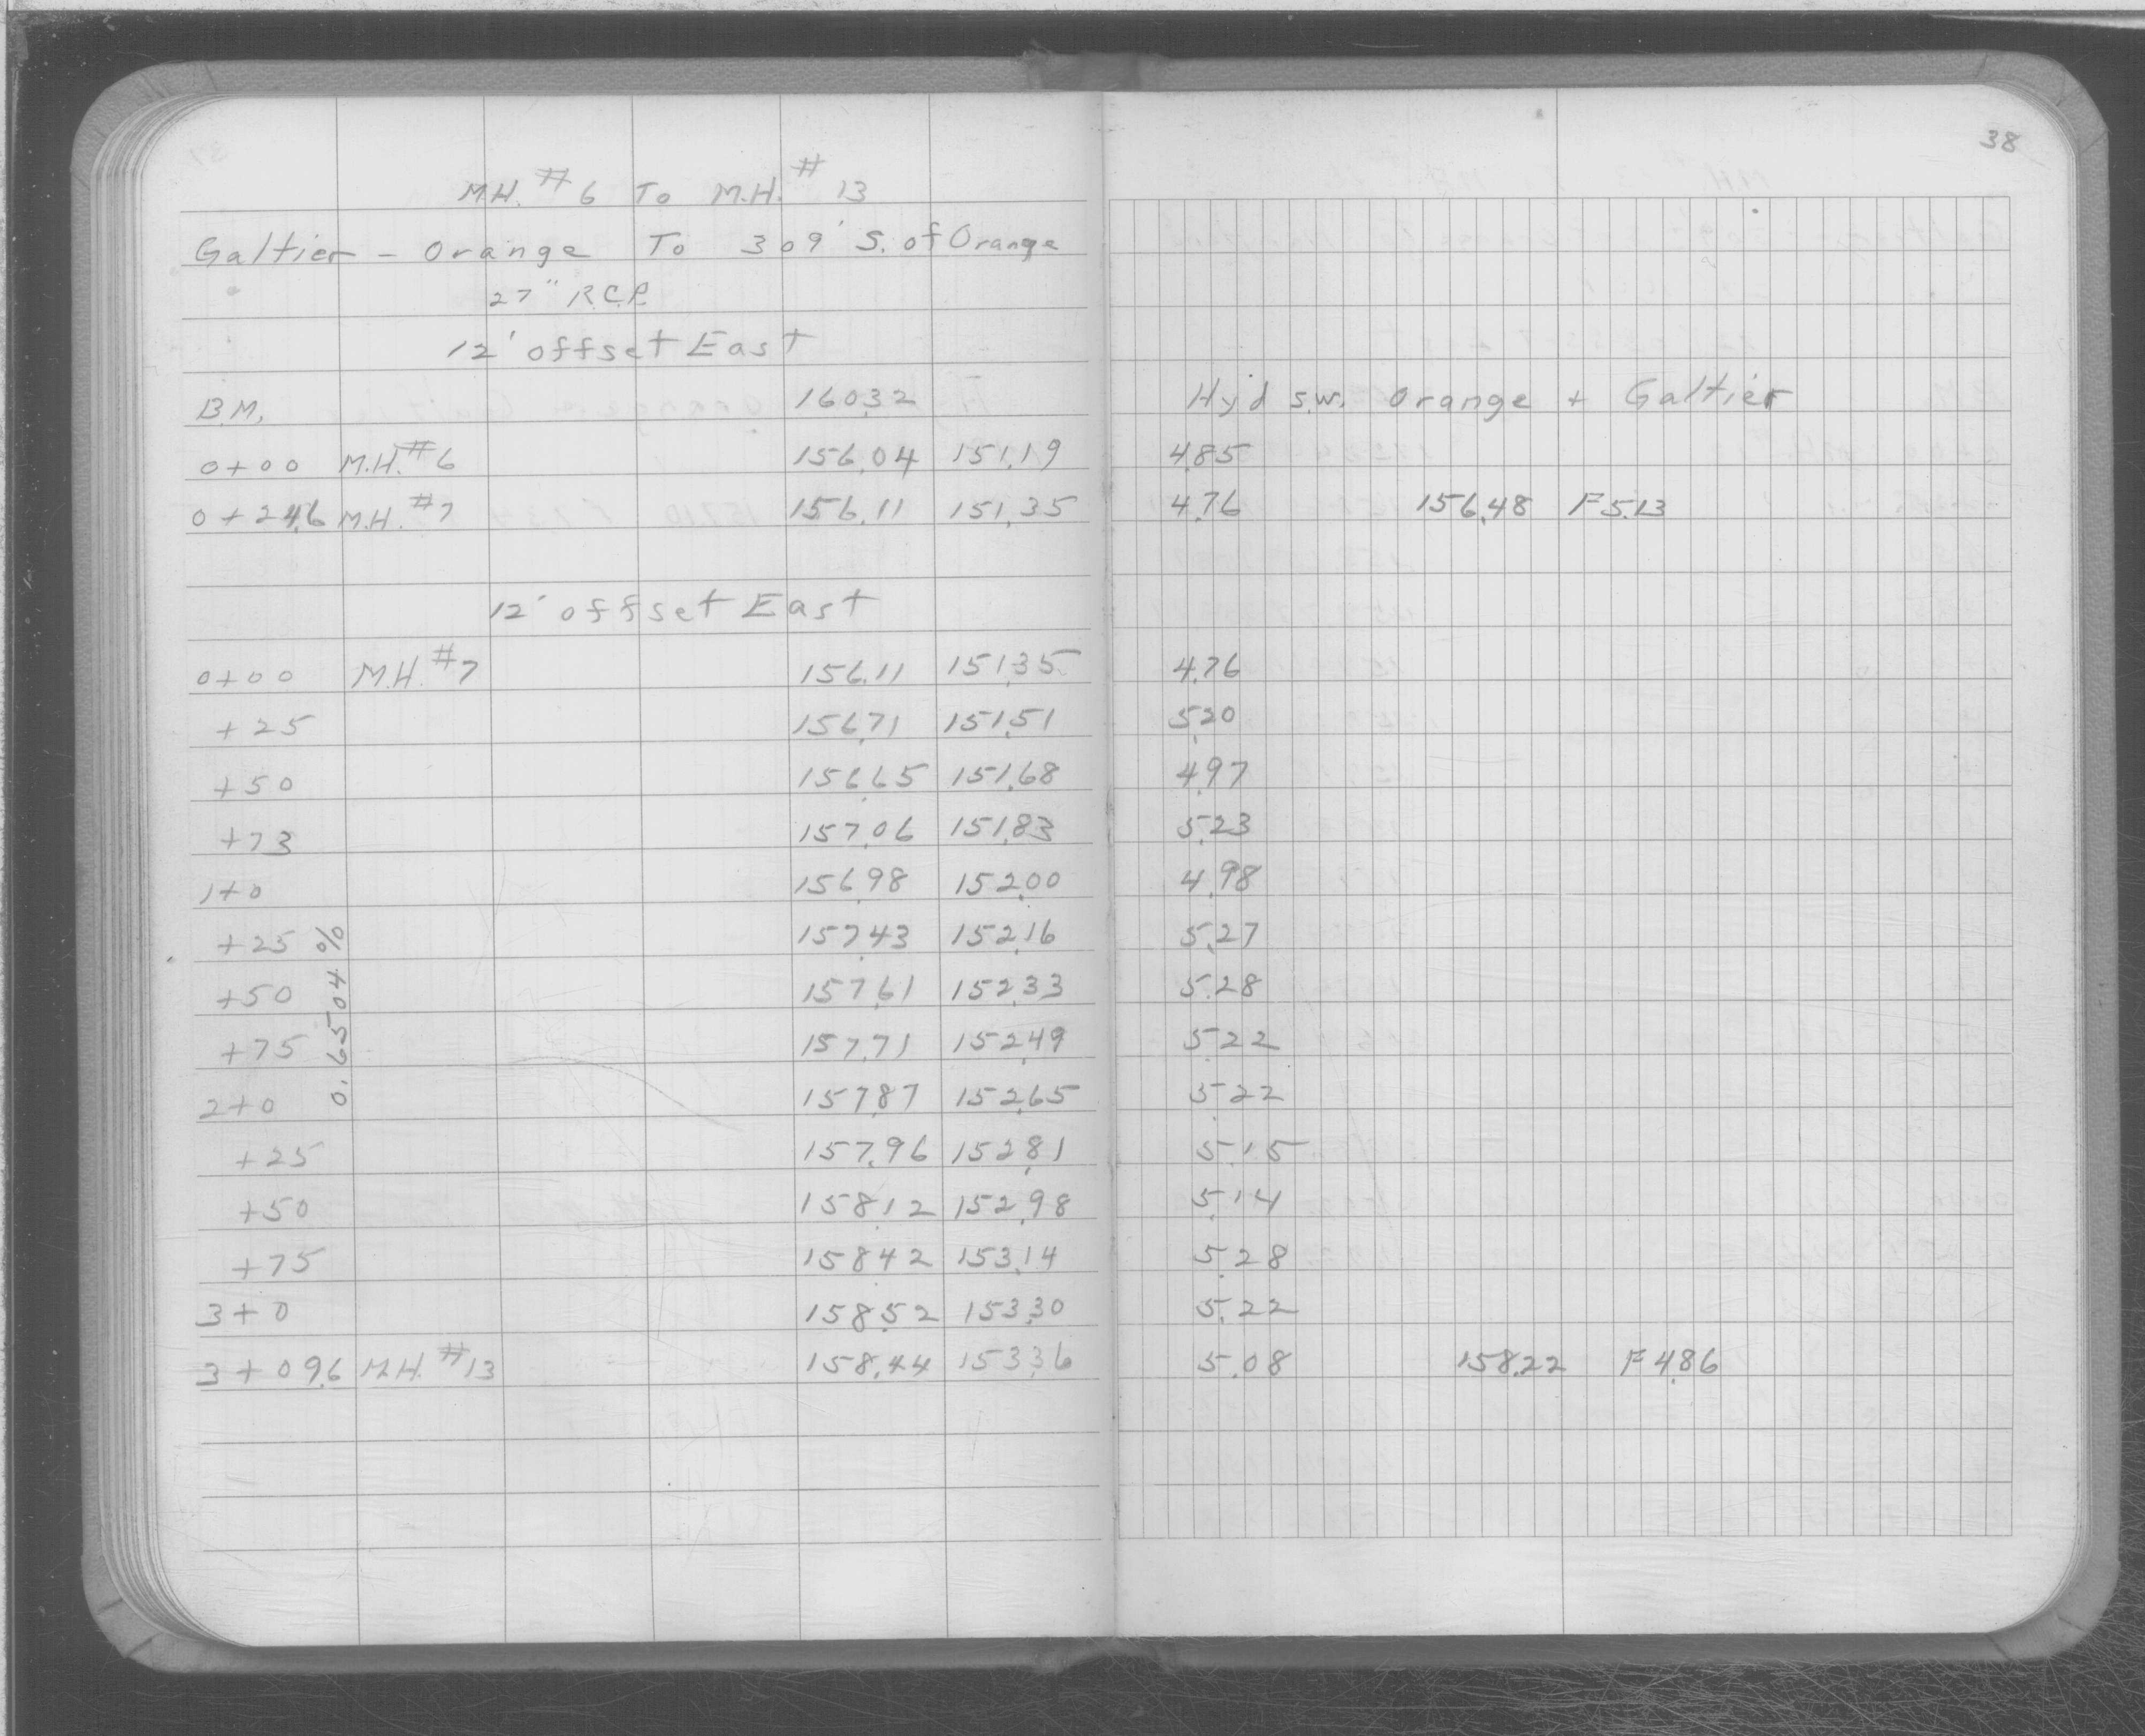 38
M.H. #6 To M.H. #13
Galtier - Orange To 309' S. of Orange
27" R.C.P.
12' offset East
B.M. 160.32 Hyd s.w. Orange + Galtier
0+00 M.H. #6 156.04 151.19 4.85
0+24.6 M.H. #7 156.11 151.35 4.76 156.48 F 5.13
12' offset East
0+00 M.H. #7 156.11 151.35 4.76
+25 156.71 151.51 5.20
+50 156.65 151.68 4.97
+73 157.06 151.83 5.23
1+0 156.98 152.00 4.98
+25 157.43 152.16 5.27
+50 157.61 152.33 5.28
+75 157.71 152.49 5.22
2+0 157.87 152.65 5.22
+25 157.96 152.81 5.15
+50 158.12 152.98 5.14
+75 158.42 153.14 5.28
3+0 158.52 153.30 5.22
3+09.6 M.H. #13 158.44 153.36 5.08 158.22 F 4.86
0.6504 %